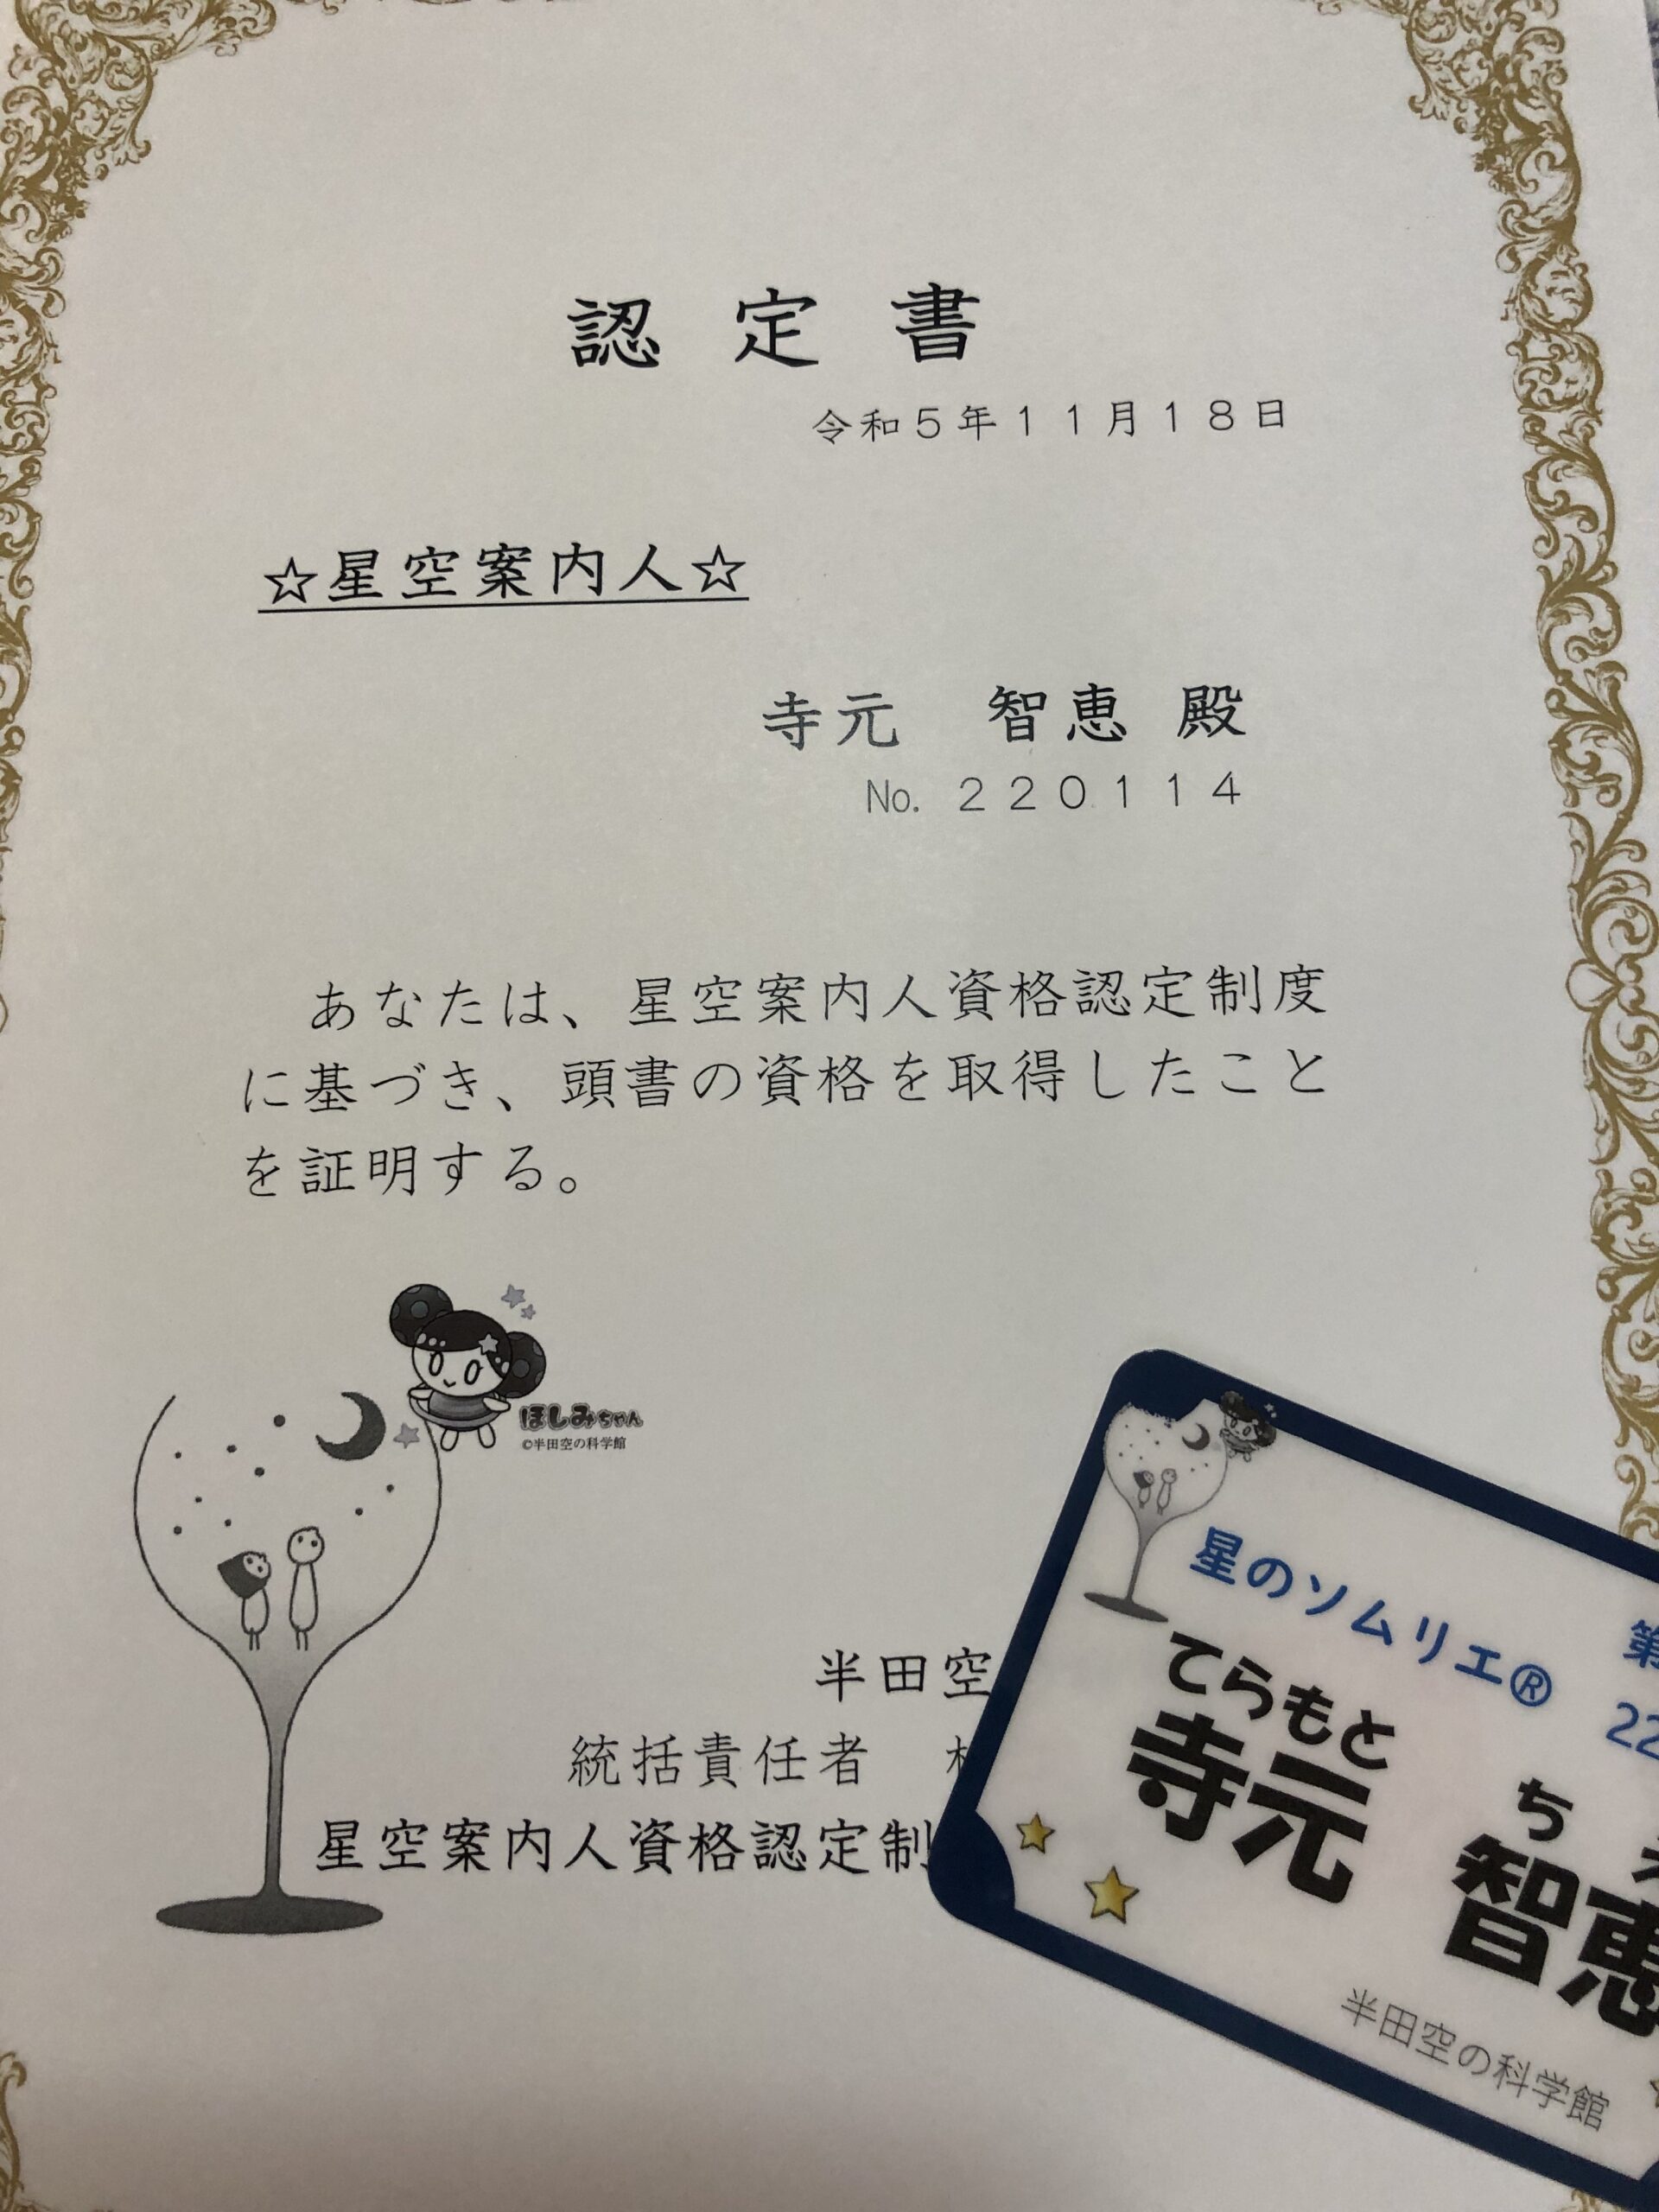 認定書
令和５年１１月１８日
☆星空案内人☆
寺元　智恵 殿
No. ２２０１１４
あなたは、星空案内人資格認定制度
に基づき、頭書の資格を取得したこと
を証明する。
ほしみちゃん
©半田空の科学館
半田空
統括責任者
星空案内人資格認定制
星のソムリエ® 第
22
てらもと ち
寺元 智恵
半田空の科学館